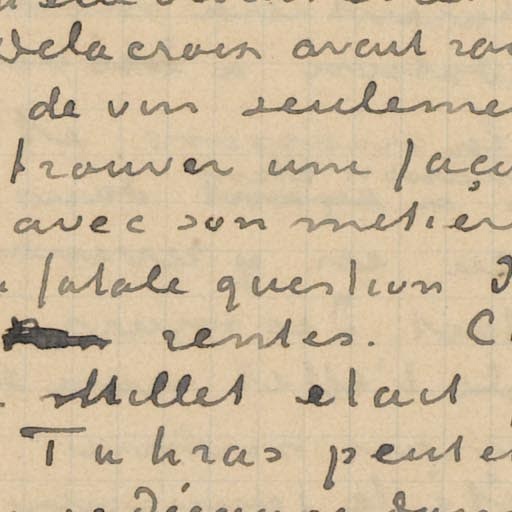 Delacroix avait rai
de vin seuleme
trouver une faço
avec son metier
fatale question
rentes. C
Millet etait
Tu liras peute